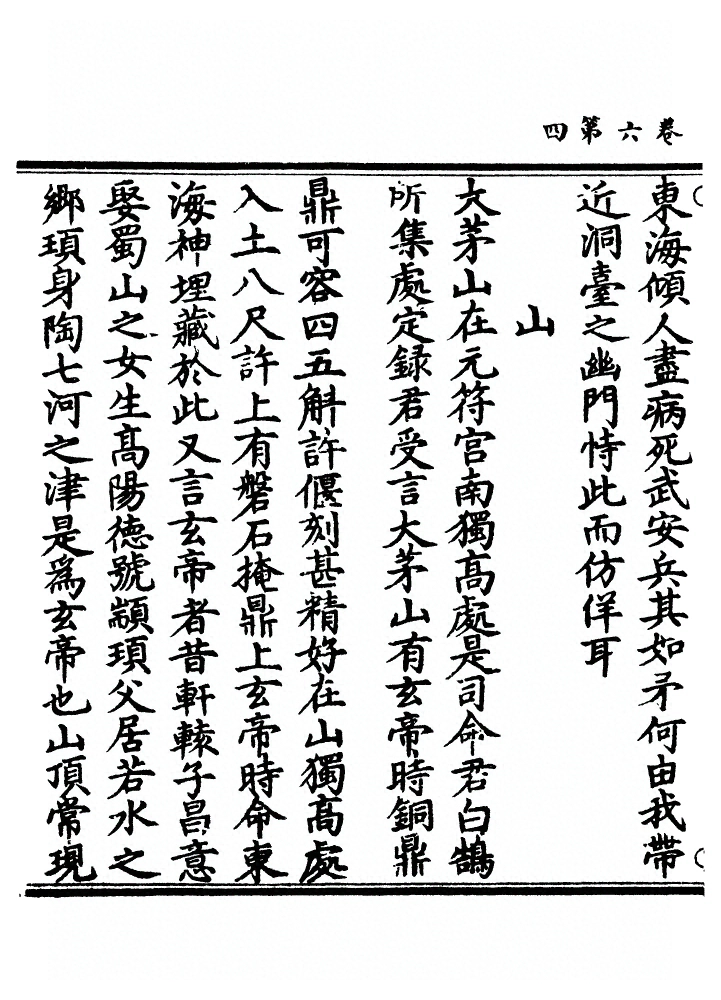 卷六第四
東海傾人盡病死武安兵其如矛何由我帶
近洞臺之幽門恃此而仿佯耳
山
大茅山在元符宮南獨高處是司命君白鵠
所集處定録君受言大茅山有玄帝時銅鼎
鼎可容四五斛許偃刻甚精好在山獨高處
入土八尺許上有磐石掩鼎上玄帝時命東
海神埋藏於此又言玄帝者昔軒轅子昌意
娶蜀山之女生高陽德號顓頊父居若水之
鄉頊身陶七河之津是爲玄帝也山頂常現